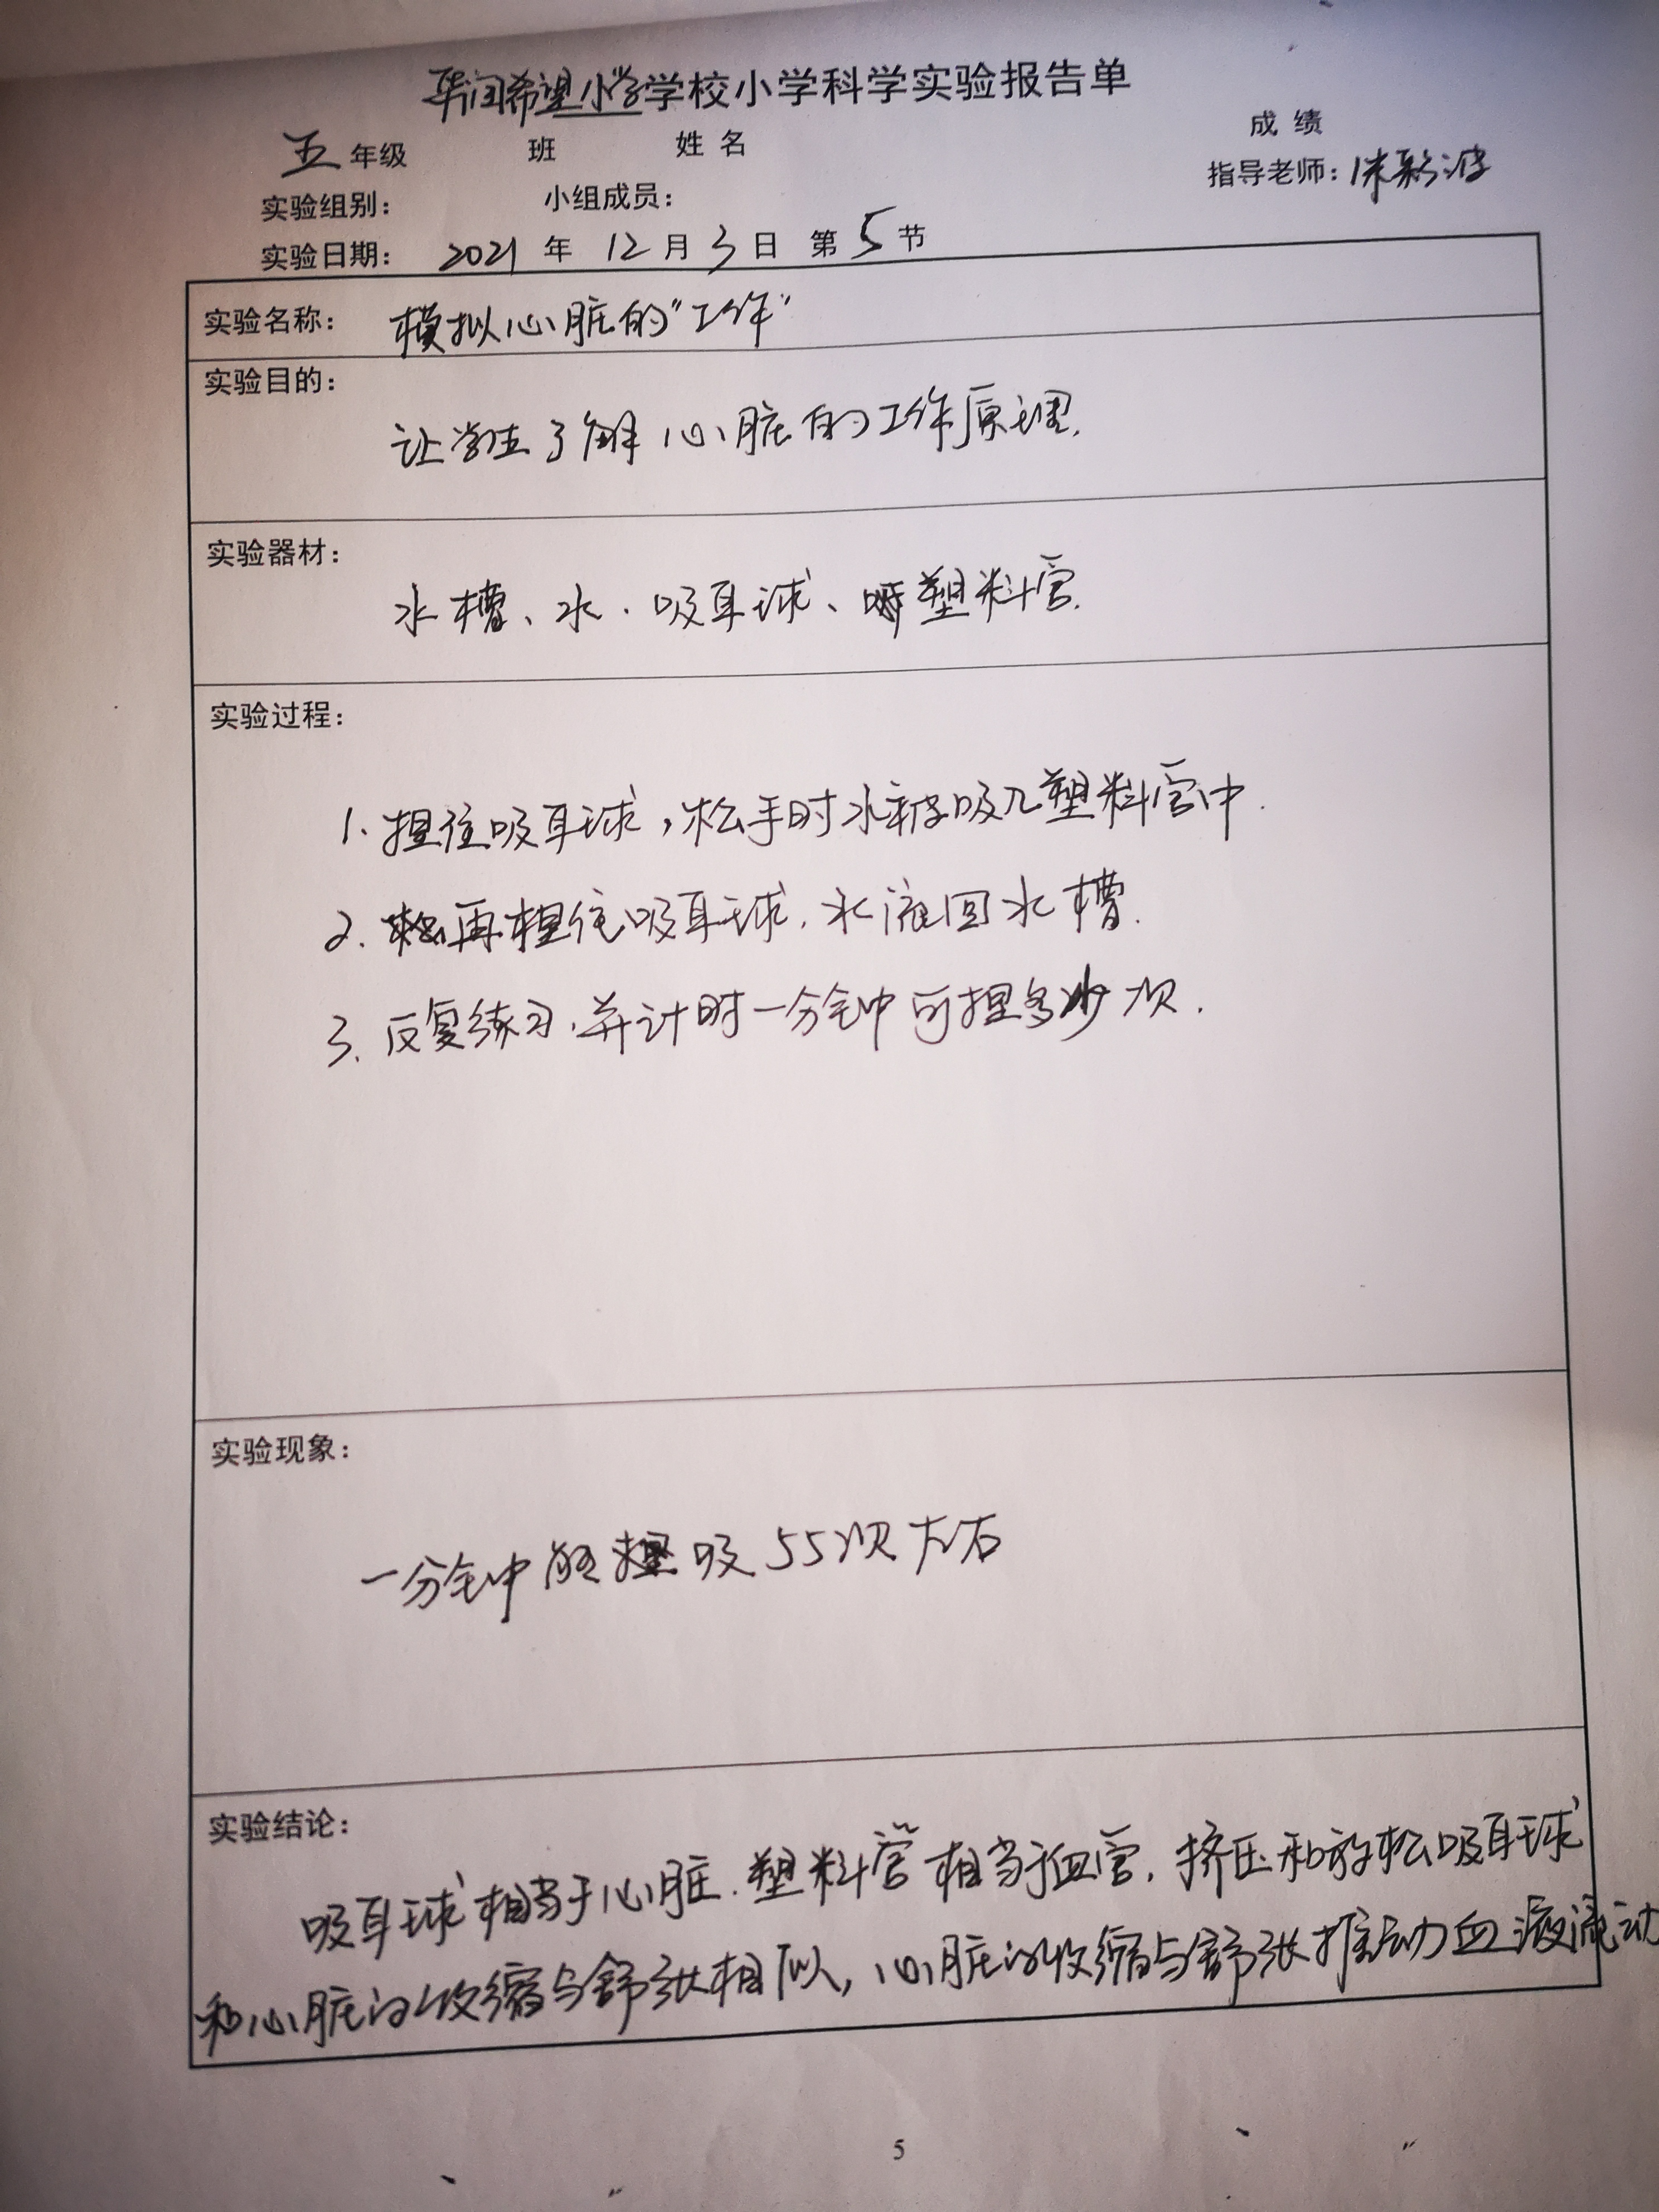 华润希望小学学校小学科学实验报告单
五年级 班 姓名 成绩
实验组别： 小组成员： 指导老师：
实验日期： 2021 年 12 月 3 日 第 5 节
实验名称： 模拟心脏的“工作”
实验目的：
让学生了解心脏的工作原理.
实验器材：
水槽、水、吸耳球、塑料管.
实验过程：
1. 捏住吸耳球，松手时水被吸入塑料管中.
2. 再捏住吸耳球，水流回水槽.
3. 反复练习，并计时一分钟可捏多少次.
实验现象：
一分钟能捏吸55次左右
实验结论：
吸耳球相当于心脏，塑料管相当于血管，挤压和放松吸耳球
和心脏的收缩与舒张相似，心脏的收缩与舒张推动血液流动
5